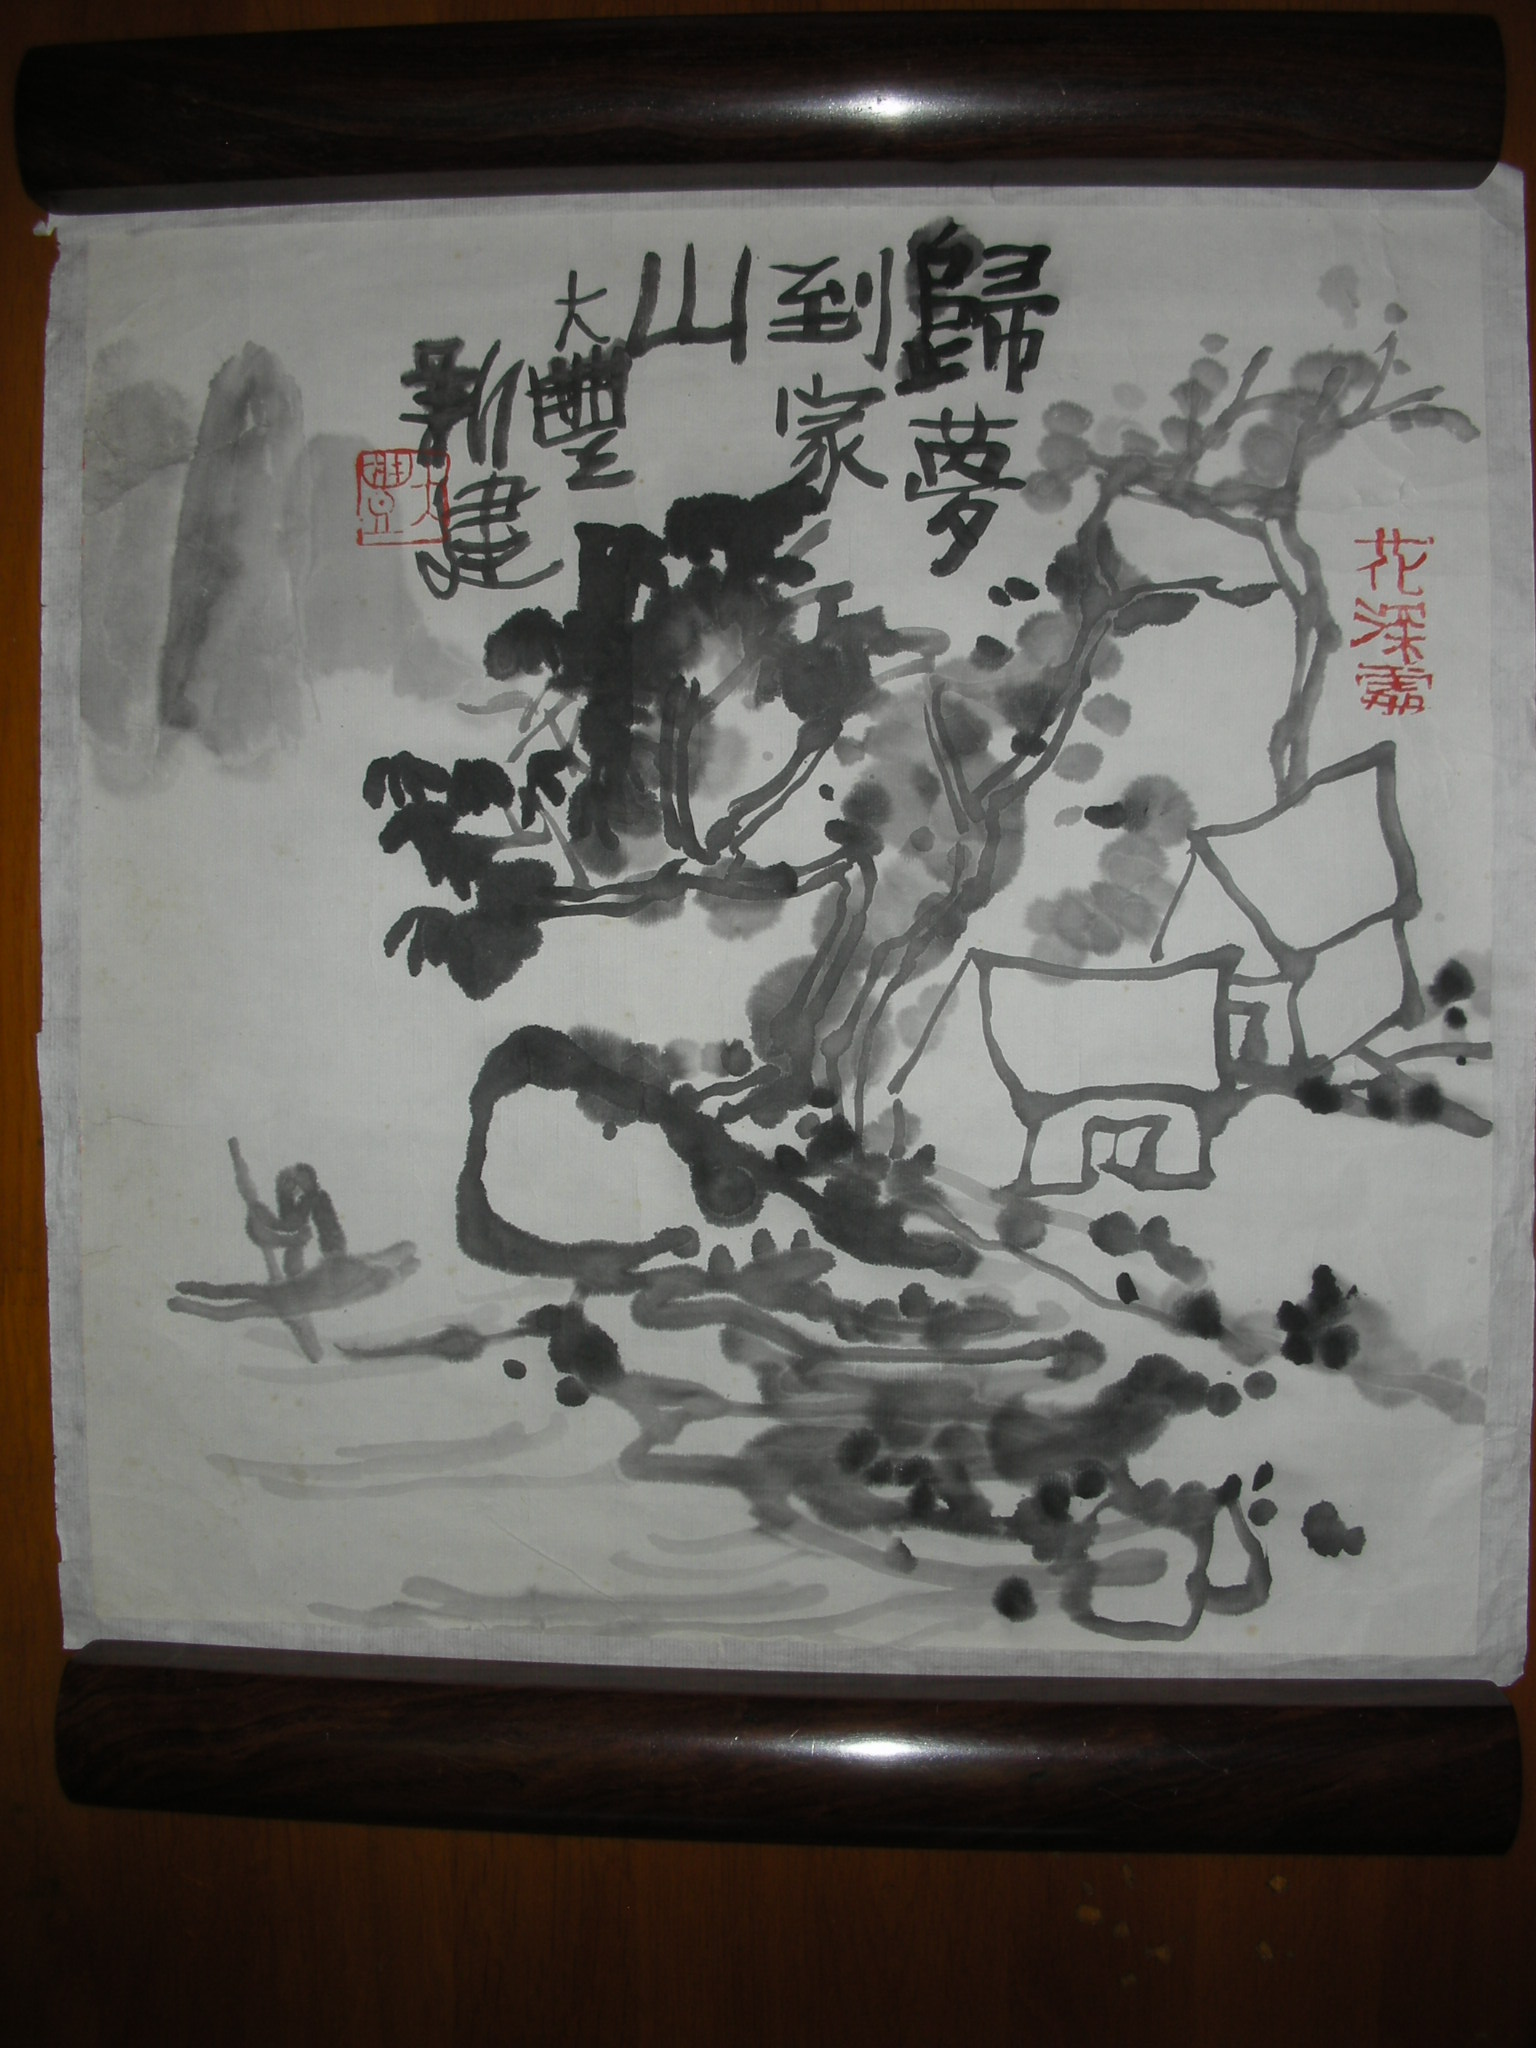 花深處
歸夢
到家
山
大豐
新建
大豐